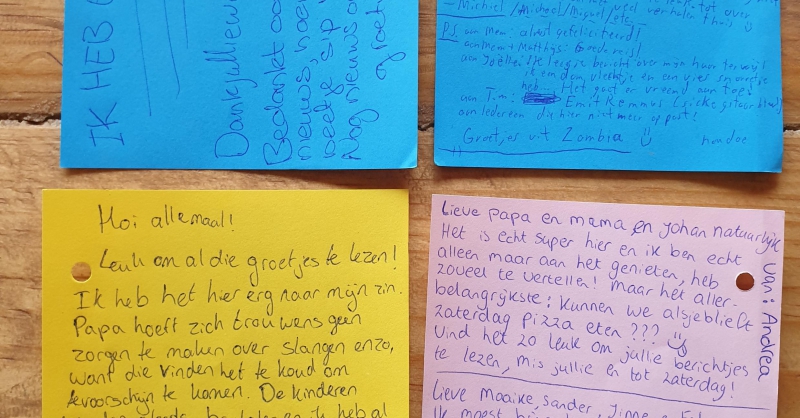 IK HEB
Dankjulliewe
Bedankt
nieuws, hoe
beetje sip
Nog nieuws o
groet
tot over
Michiel/Micheel/Miguel/etc.
P.S. aan Mem: alvast gefeliciteerd!
aan mem + Matthijs: Goede reis!
aan Joëlle:
heb... Het gaat er vreemd aan toe!
aan Tim: Emit Remmus
aan iedereen die hier niet meer op past!
Groetjes uit Zambia houdoe
Hoi allemaal!
Leuk om al die groetjes te lezen!
Ik heb het hier erg naar mijn zin.
Papa hoeft zich trouwens geen
zorgen te maken over slangen enzo,
want die vinden het te koud om
tevoorschijn te komen. De kinderen
ik heb al
Lieve papa en mama en Johan natuurlijk
Het is echt super hier en ik ben echt
alleen maar aan het genieten, heb
zoveel te vertellen! Maar het aller-
belangrijkste: Kunnen we alsjeblieft
zaterdag pizza eten ???
Vind het zo leuk om jullie berichtjes
te lezen, mis jullie en tot zaterdag!
Van: Andrea
Lieve Maaike, Sander, Jinne
Ik moest